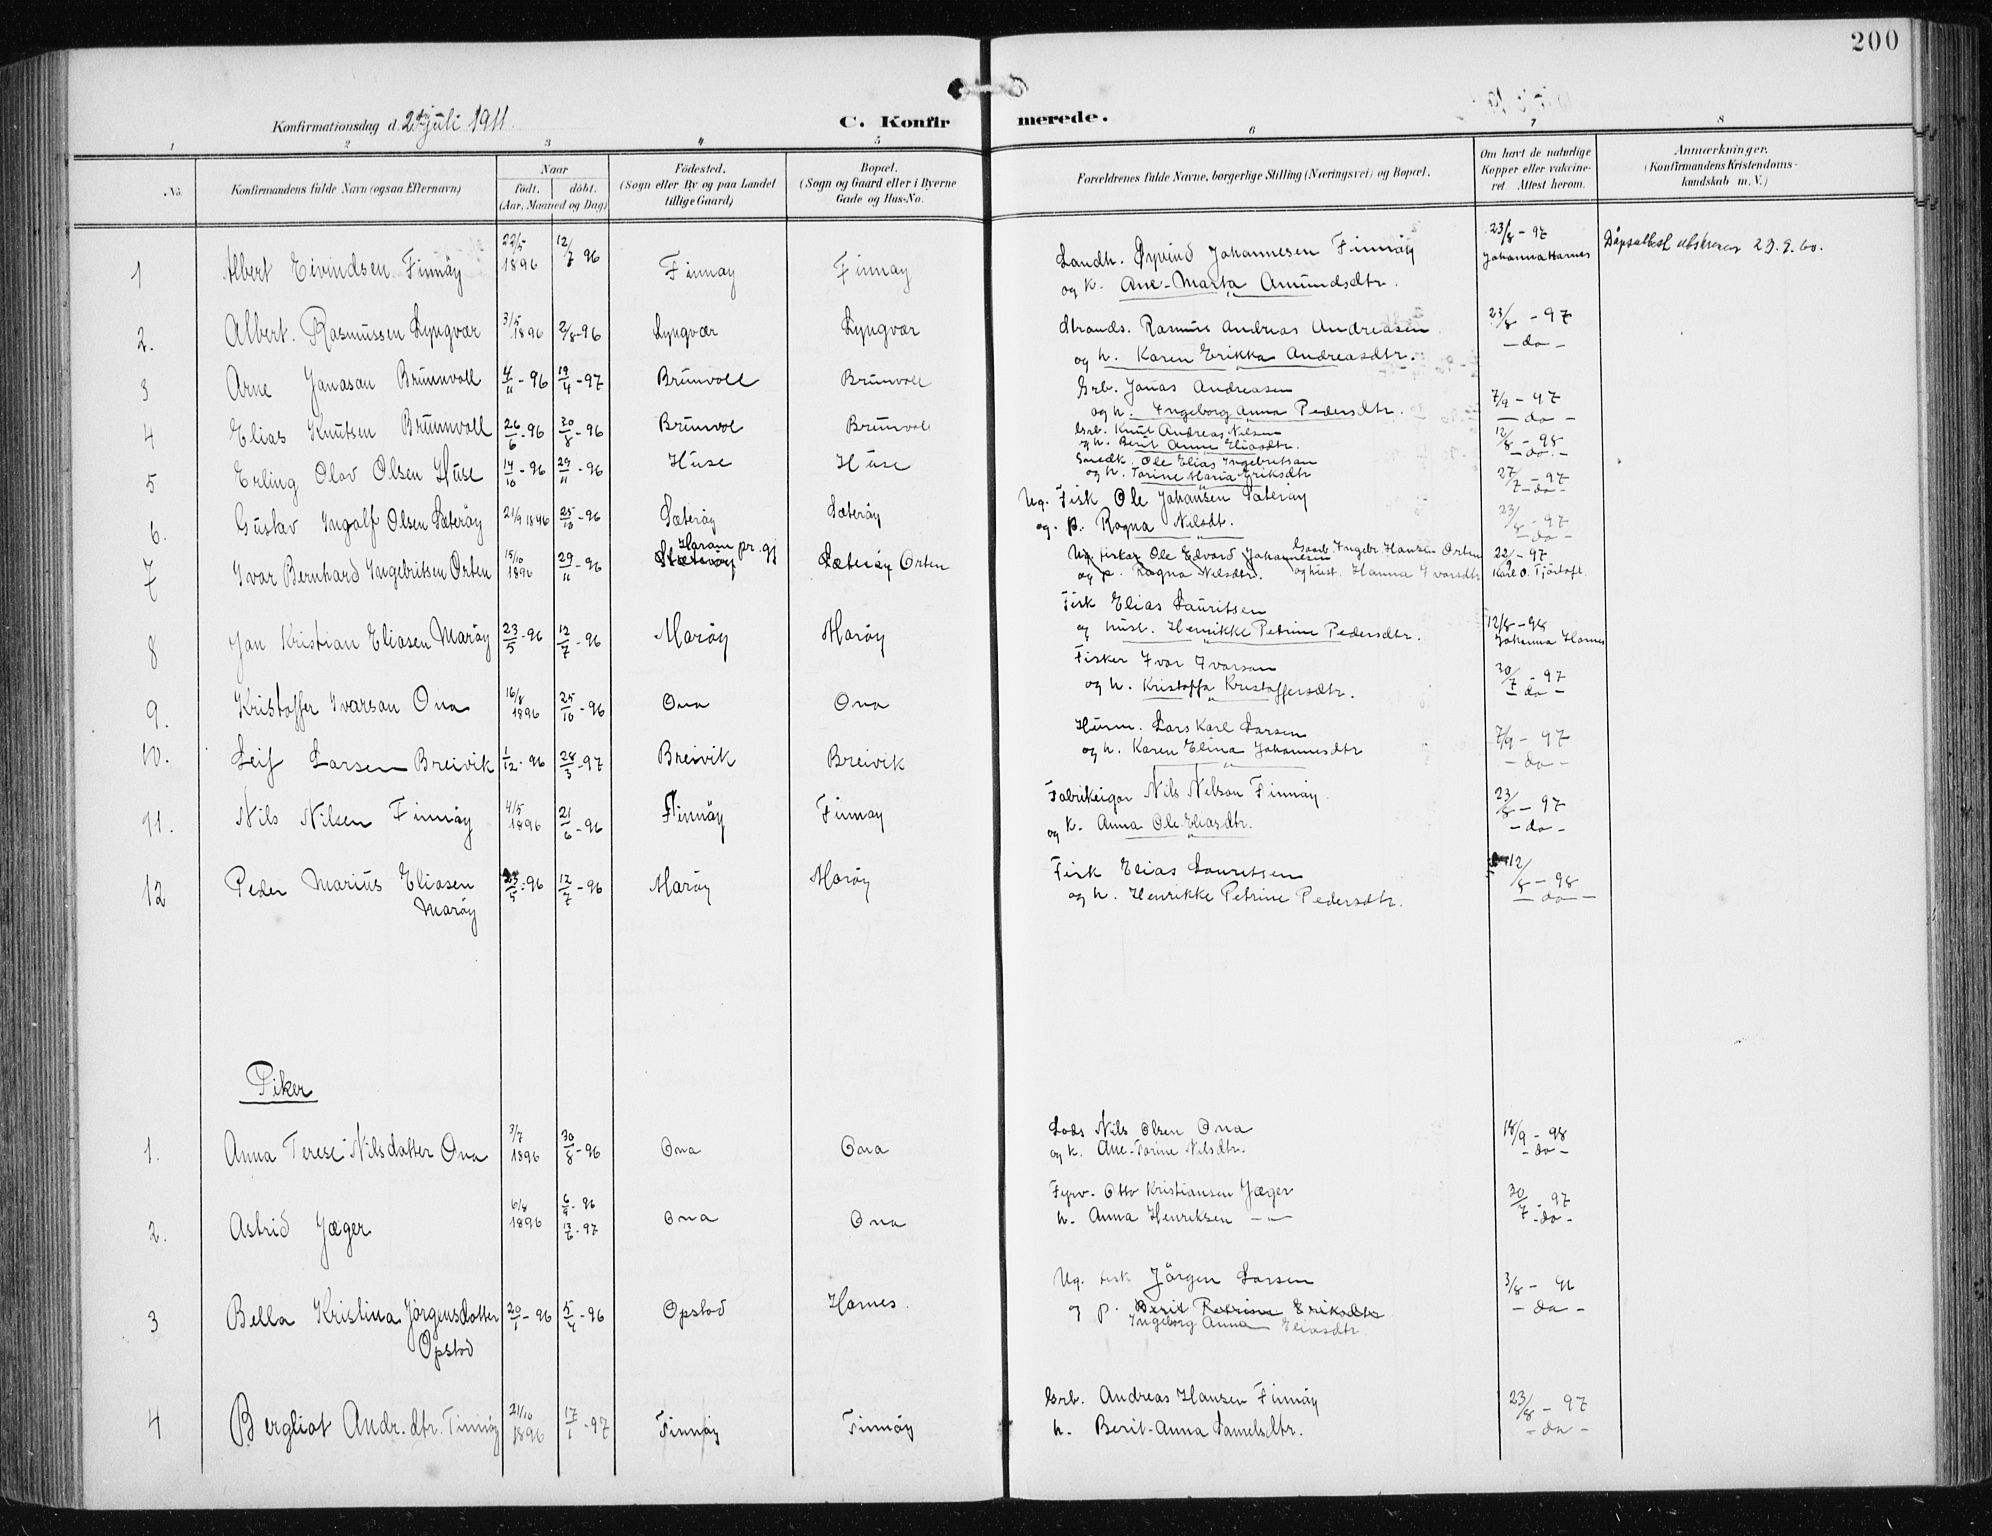 200
Konfirmationsdag d. 2den juli 1911.
C. Konfirmerede.
1 2 3 4 5 6 7 8
No. Konfirmandens fulde Navn (ogsaa Efternavn) Naar født, døbt. (Aar, Maaned og Dag) Fødested. (Sogn eller By og paa Landet tillige Gaard) Bopæl. (Sogn og Gaard eller i Byerne Gade og Hus-No. Forældrenes fulde Navne, borgerlige Stilling (Næringsvei) og Bopæl. Om havt de naturlige Kopper eller vakcineret. Attest herom. Anmærkninger. (Konfirmandens Kristendomskundskab m. V.)
1 Albert Eivindsen Finnöy 22/5 1896 12/7 96 Finnøy Finnøy Landh. Øyvind Johannesen Finnöy 23/8 - 97 Dåpsattest utskreven 29.9.60.
og k. Ane-Marta Amundsdtr. Johanna Harnes
2. Albert. Rasmussen Lyngvær 31/5 1896 2/8-96 Lyngvær Lyngvær Strands. Rasmus Andreas Andreasen 23/8 - 97
og h. Karen Erikka Andreasdtr. - do -
3 Arne Jonasan Brunvoll 4/11 - 96 19/4 - 97 Brunvoll Brunvoll Grb. Jonas Andreasen 7/9 - 97
og h. Ingeborg Anna Pedersdtr. - do -
4 Elias Knutsen Brunvoll 26/6 - 96 30/8 - 96 Brunvol Brunvol Grb. Knut Andreas Nilsen 12/8 - 98
og h. Berit Anne Eliasdtr. - do -
5 Erling Olav Olsen Huse 14/10 - 96 29/11 - 96 Huse Huse Snedk. Ole Elias Ingebritsen 27/7 - 97
og h. Torine Maria Eriksdtr - do -
6. Gustav Ingolf Olsen Sæteröy 21/9 1896 25/10 - 96 Sæteröy Sæteröy Ug. Fisk Ole Johansen Sæteröy 23/8 - 97
og p. Ragna Nilsdt. - do -
7 Ivar Bernhard Ingebritsen Orten 15/10 1896 29/11 - 96 Haram pr.gj Sæteröy Orten Ug fisker Ole Edvard Johannesen Gaarb. Ingebr Hansen Orten 22/9 - 97
og p. Ragna Nilsdtr. og hust. Hanna Ivarsdtr Karl O. Tjörtoft.
8 Jan Kristian Eliasen Maröy 23/5 - 96 12/7 - 96 Maröy Maröy Fisk Elias Lauritsen 12/8 - 98
og hust. Henrikke Petrine Pedersdtr. Johanna Harnes
9. Kristoffer Ivarsan Ona 16/8 1896 25/10 - 96 Ona Ona Fisker Ivar Ivarsan 30/7 - 97
og h. Kristoffa Kristoffersdtr. - do -
10. Leif Larsen Breivik 1/12 - 96 28/3 - 97 Breivik Breivik Husm. Lars Karl Larsen 7/9 - 97
og h. Karen Elina Johannesdtr - do -
11. Nils Nilsen Finnöy 4/5 1896 21/6 - 96 Finnöy Finnøy Fabrikeigar Nils Nilson Finnöy 23/8 - 97
og k. Anna Ole-Eliasdtr. - do -
12 Peder Marius Eliasen Maröy 23/5 - 96 12/7 - 96 Maröy Maröy Fisk Elias Lauritsen 12/8 - 98
og h. Henrikke Petrine Pedersdtr. - do -
Piker
1. Anna Terese Nilsdatter Ona 3/7 1896 30/8 - 96 Ona Ona Lods Nils Olsen Ona 18/9 - 98
og k. Ane-Torine Nilsdtr. - do -
2. Astrid Jæger 6/8 1896 6/9 - 96 13/6 - 97 Ona Ona Fyrv. Otto Kristiansen Jæger 30/7 - 97
h. Anna Henriksen - " - - do -
3 Bella Kristina Jörgensdatter Opstod 20/1 - 96 5/4 - 96 Opstod Harnes. Ug. fisk Jörgen Larsen 3/8 - 96
og p. Berit Petrine Eriksdtr - do -
Ingeborg Anna Eliasdtr.
4 Bergliot Andr. dtr. Finnöy 21/10 1896 17/1 - 97 Finnöy Finnöy Grb. Andreas Hansen Finnöy 23/8 - 97
h. Berit-Anna Samelsdtr. - do -